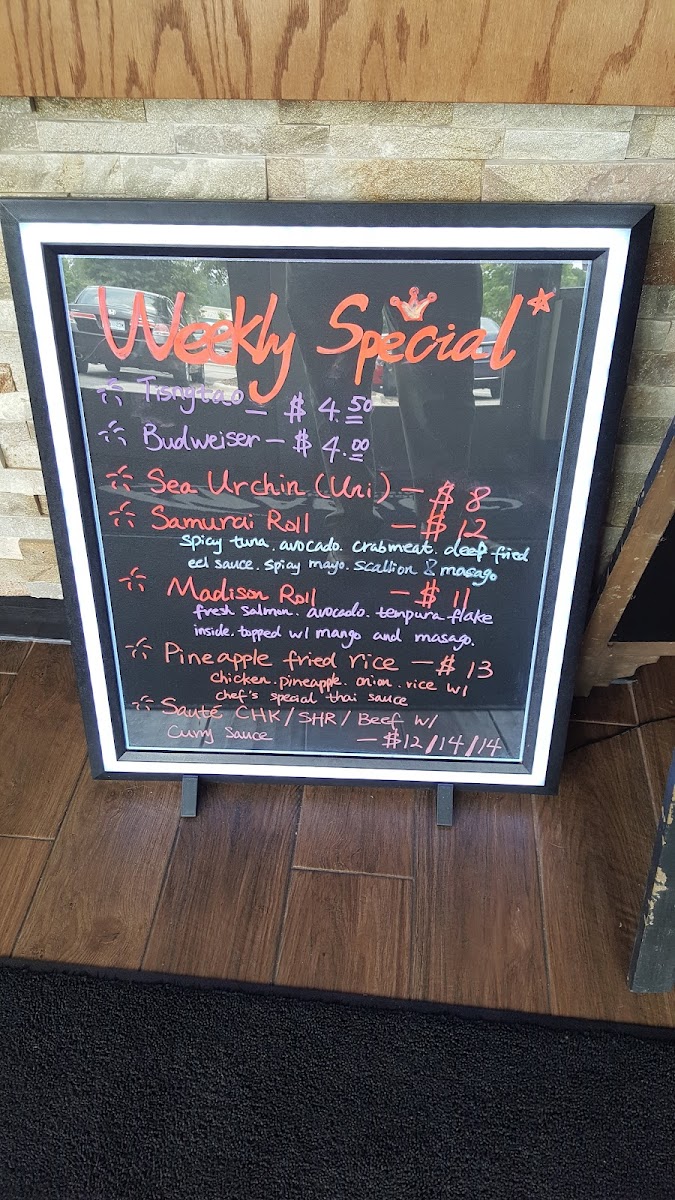 Weekly Special
Tisngtao - $4.50
Budweiser - $4.00
Sea Urchin (Uni) - $8
Samurai Roll - $12
spicy tuna. avocado. crabmeat. deep fried
eel sauce. spicy mayo. scallion & masago
Madison Roll - $11
fresh salmon. avocado. tempura flake
inside. topped w/ mango and masago.
Pineapple fried rice - $13
chicken. pineapple. onion. rice w/
chef's special thai sauce
Sauté CHK/SHR/Beef w/
Curry Sauce - $12/14/14